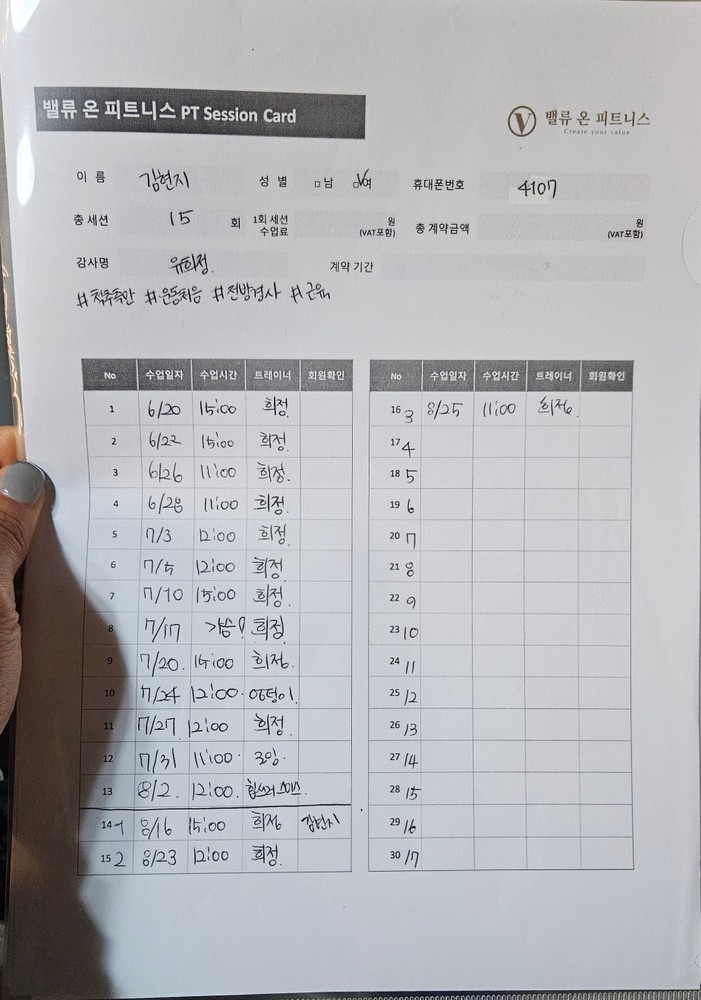 밸류 온 피트니스 PT Session Card
밸류 온 피트니스
Create your value
이 름 김현지 성 별 □남 □여 휴대폰번호 4107
총 세션 15 회 1회 세션 수업료 원 (VAT포함) 총 계약금액 원 (VAT포함)
강사명 유희정 계약 기간
#척추측만 #운동처음 #전방경사 #근육
No 수업일자 수업시간 트레이너 회원확인
1 6/20 15:00 희정.
2 6/22 15:00 희정.
3 6/26 11:00 희정.
4 6/28 11:00 희정.
5 7/3 12:00 희정.
6 7/5 12:00 희정.
7 7/10 15:00 희정.
8 7/17 가슴! 희정
9 7/20. 희정.
10 7/24 12:00. 엉덩이.
11 7/27 12:00 희정.
12 7/31 11:00.
13 8/2. 12:00.
14 1 8/16 15:00 희정 김현지
15 2 8/23 12:00 희정.
No 수업일자 수업시간 트레이너 회원확인
16 3 8/25 11:00 희정.
17 4
18 5
19 6
20 7
21 8
22 9
23 10
24 11
25 12
26 13
27 14
28 15
29 16
30 17